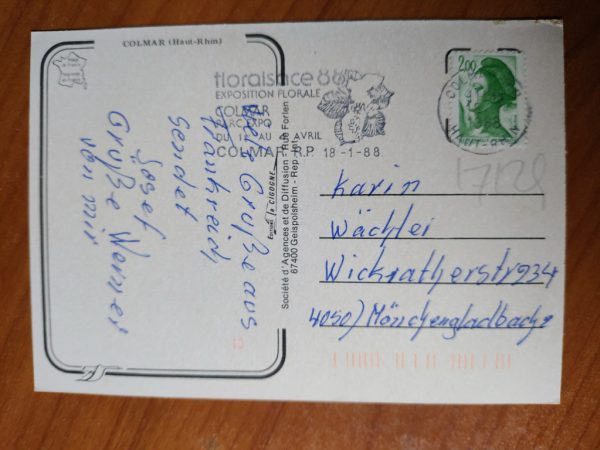 COLMAR (Haut-Rhin)
floralsace 88
EXPOSITION FLORALE
COLMAR
PARC EXPO
AVRIL
COLMAR R.P. 18-1-88
2,00
Grüße aus
Frankreich
sendet
Josef
Grüße Werner
von mir
Editions La CIGOGNE
Société d'Agences et de Diffusion - Rue Forlen
67400 Geispolsheim - Rep. Int.
7129
Karin
Wächter
Wickratherstr 234
4050) Mönchengladbach 2